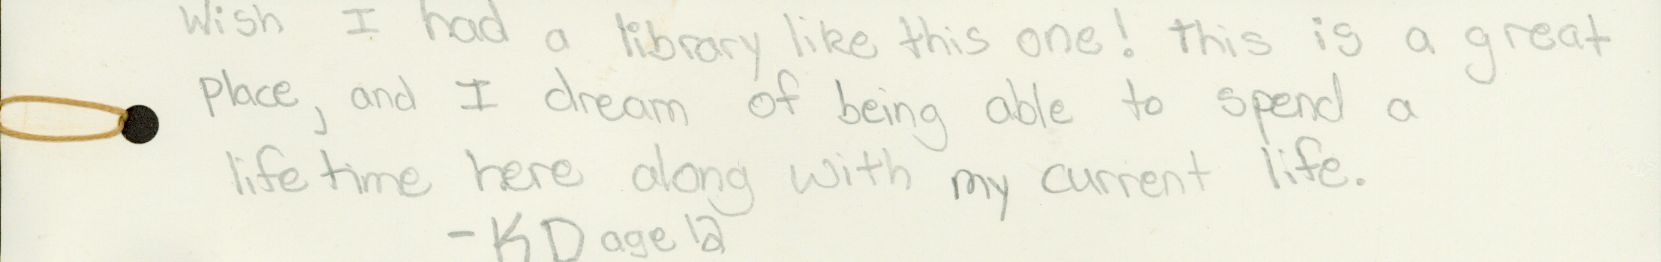 Wish I had a library like this one! this is a great
place, and I dream of being able to spend a
life time here along with my current life.
- KD age 12